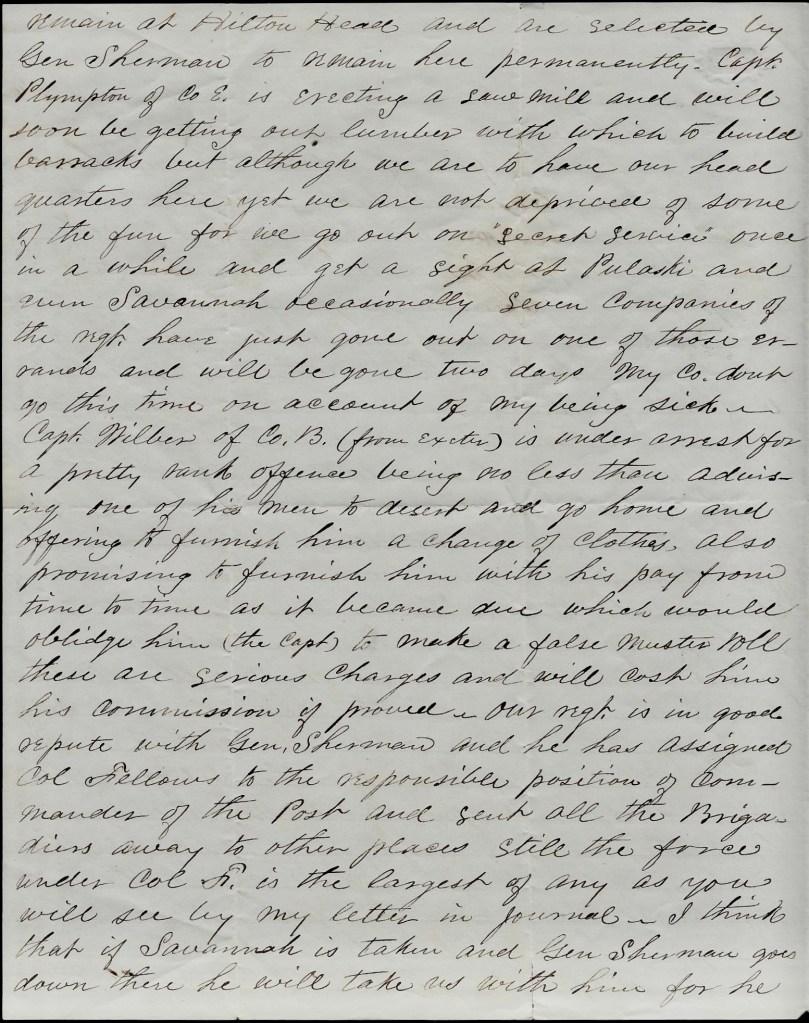 remain at Hilton Head and are selected by
Gen Sherman to remain here permanently - Capt.
Plympton of Co E. is erecting a saw mill and will
soon be getting out lumber with which to build
barracks but although we are to have our head
quarters here yet we are not deprived of some
of the fun for we go out on "secret service" once
in a while and get a sight at Pulaski and
even Savannah occasionally Seven Companies of
the regt. have just gone out on one of those er-
rands and will be gone two days My Co. dont
go this time on account of my being sick -
Capt. Wilber of Co. B. (from Exeter) is under arrest for
a pretty rank offence being no less than advis-
ing one of his men to desert and go home and
offering to furnish him a change of clothes, also
promising to furnish him with his pay from
time to time as it became due which would
oblidge him (the Capt) to make a false Muster Roll
these are serious charges and will cost him
his commission if proved - our regt. is in good
repute with Gen. Sherman and he has assigned
Col Fellows to the responsible position of Com-
mander of the Post and sent all the Briga-
diers away to other places still the force
under Col F. is the largest of any as you
will see by my letter in journal - I think
that if Savannah is taken and Gen Sherman goes
down there he will take us with him for he